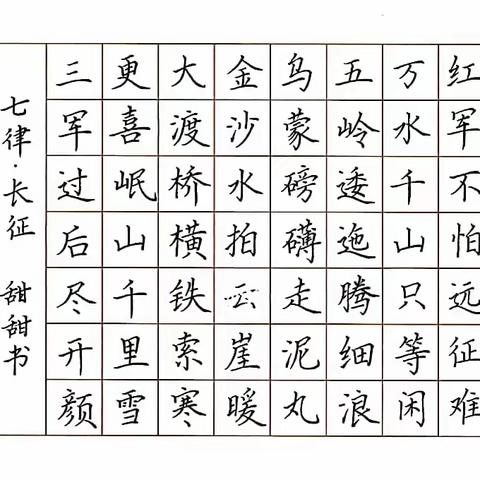 红军不怕远征难
万水千山只等闲
五岭逶迤腾细浪
乌蒙磅礴走泥丸
金沙水拍云崖暖
大渡桥横铁索寒
更喜岷山千里雪
三军过后尽开颜
七律·长征 甜甜书